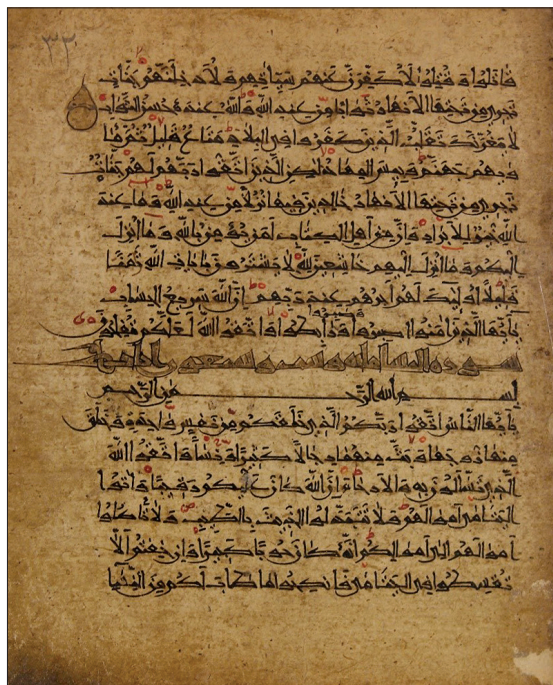 ٣٢
وقاتلوا وقتلوا لأكفرن عنهم سيئاتهم ولأدخلنهم جنات
تجري من تحتها الأنهار ثوابا من عند الله والله عنده حسن الثواب
لا يغرنك تقلب الذين كفروا في البلاد متاع قليل ثم ما
ويهم جهنم وبئس المهاد لكن الذين اتقوا ربهم لهم جنات
تجري من تحتها الأنهار خالدين فيها نزلا من عند الله وما عند
الله خير للأبرار وإن من أهل الكتاب لمن يؤمن بالله وما أنزل
إليكم وما أنزل إليهم خاشعين لله لا يشترون بآيات الله ثمنا
قليلا أولئك لهم أجرهم عند ربهم إن الله سريع الحساب
يا أيها الذين آمنوا اصبروا وصابروا ورابطوا واتقوا الله لعلكم تفلحون
سورة النسا مائة وسبعون
بسم الله الرحمن الرحيم
يا أيها الناس اتقوا ربكم الذي خلقكم من نفس واحدة وخلق
منها زوجها وبث منهما رجالا كثيرا ونساء واتقوا الله
الذي تساءلون به والأرحام إن الله كان عليكم رقيبا وآتوا
اليتامى أموالهم ولا تتبدلوا الخبيث بالطيب ولا تأكلوا
أموالهم إلى أموالكم إنه كان حوبا كبيرا وإن خفتم ألا
تقسطوا في اليتامى فانكحوا ما طاب لكم من النساء